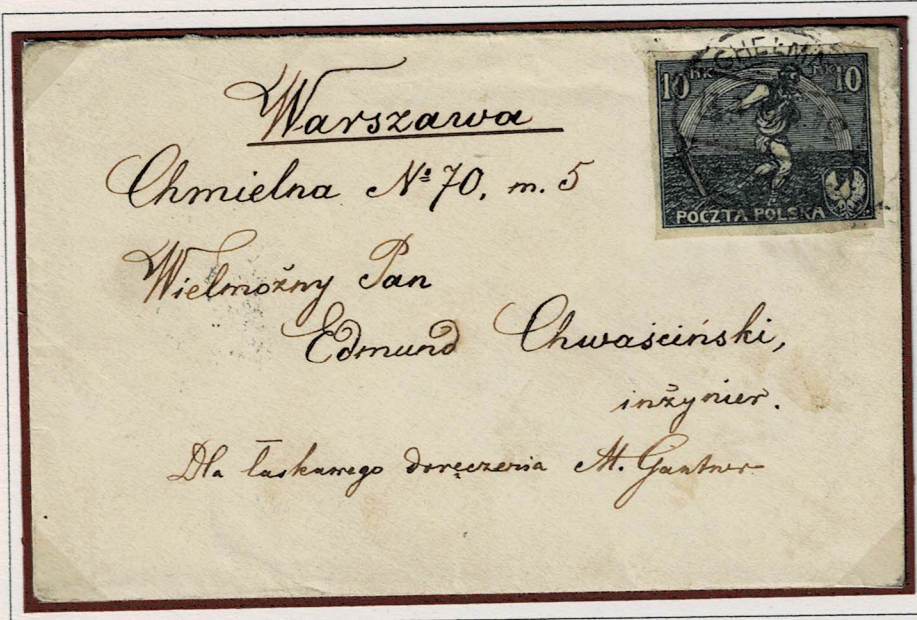 Warszawa
Chmielna № 70, m. 5
Wielmożny Pan
Edmund Chwaściński,
inżynier.
Dla łaskawego doręczenia M. Gantner
10 MK MK 10
POCZTA POLSKA